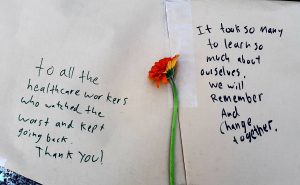 to all the
healthcare workers
who watched the
worst and kept
going back.
Thank you!
It took so many
to learn so
much about
ourselves.
We will
Remember
And
Change
together.